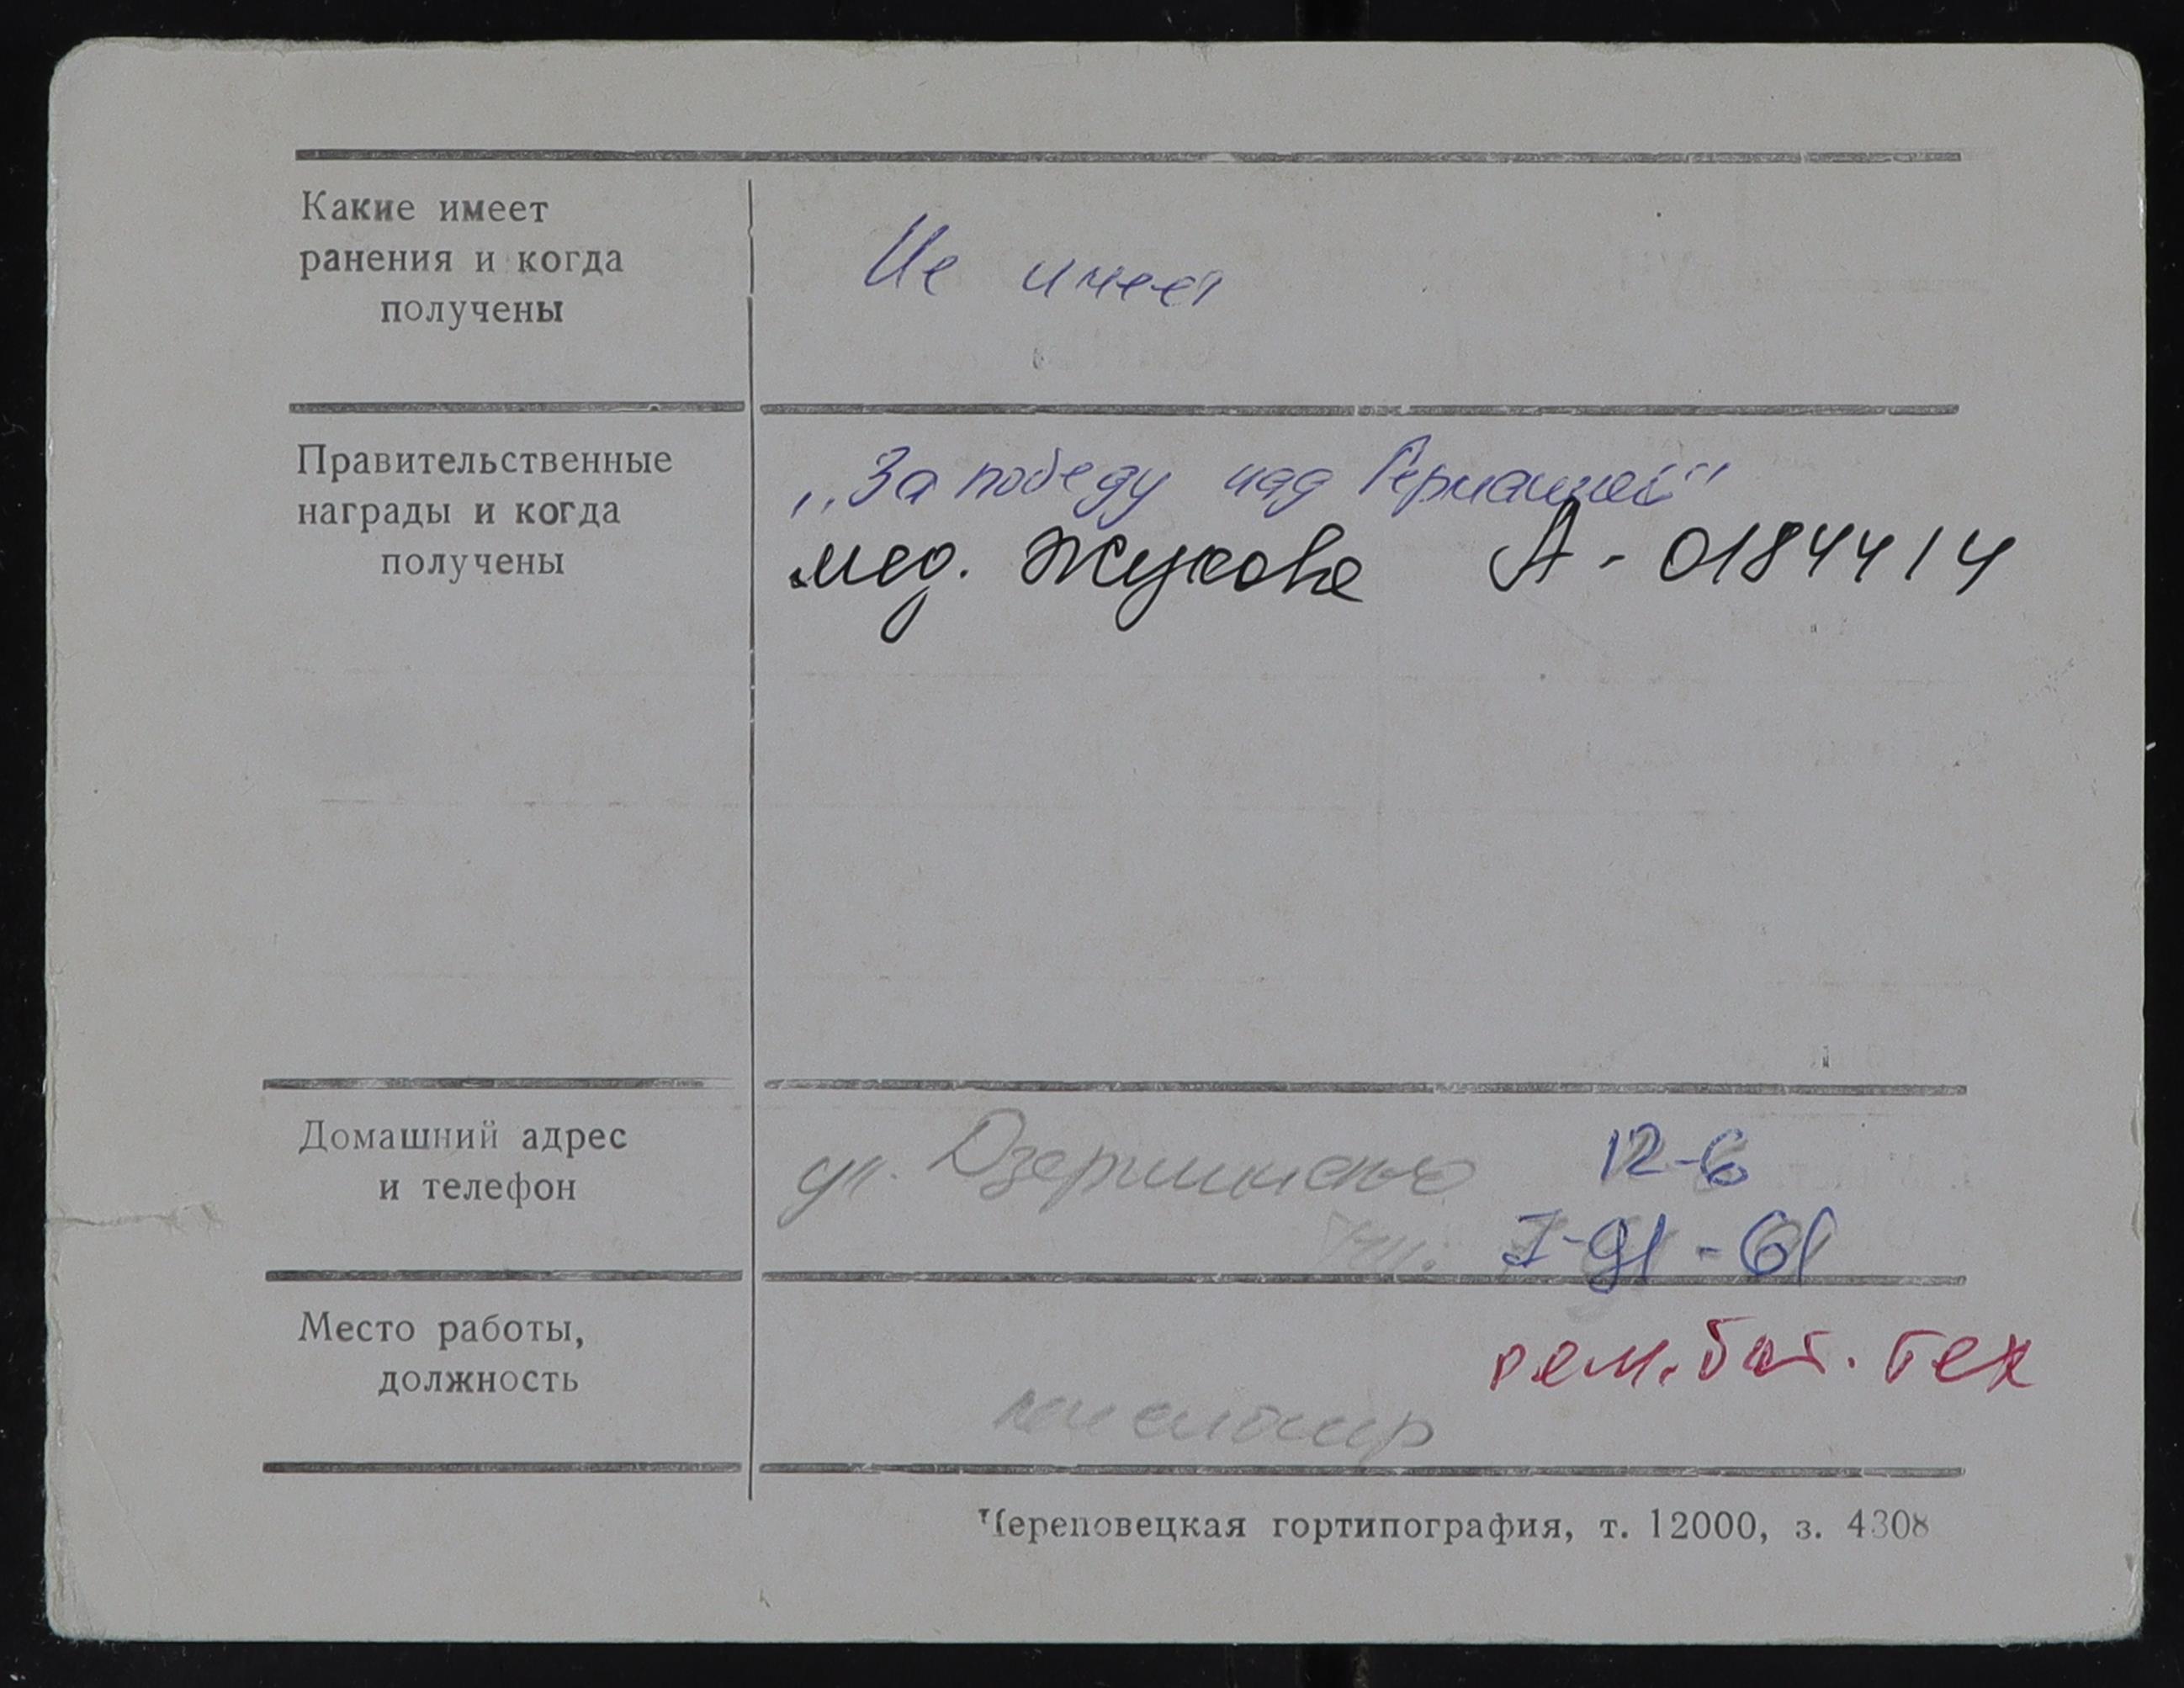 Какие имеет
ранения и когда
получены
Не имеет
Правительственные
награды и когда
получены
„За победу над Германией"
мед. Жукова А - 0184414
Домашний адрес
и телефон
ул. Дзержинского 12-6
7-91-61
Место работы,
должность
рем. бат. тех
пенсионер
Череповецкая гортипография, т. 12000, з. 4308